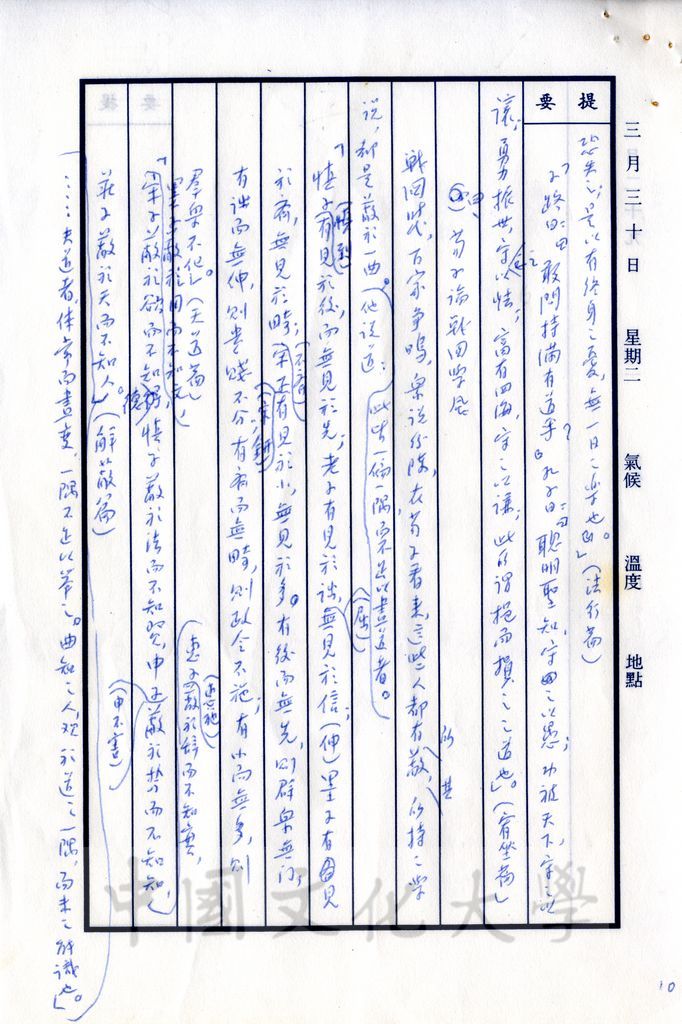 三月三十日 星期二 氣候 溫度 地點
提要
恐失之,是以有終身之憂,無一日之樂也。」(法行篇)
「子路曰:「敢問持滿有道乎?」孔子曰:「聰明聖知,守之以愚;功被天下,守之以
讓;勇振世,守之以怯;富有四海,守之以謙;此所謂挹而損之之道也」。(宥坐篇)
荀子論戰國學風
戰國時代,百家爭鳴,眾說紛陳,在荀子看來,這些人都有所蔽,其所持之學
說,都是蔽於一曲。此皆一偏一隅,而不足以盡道者。他說道:
「慎子(慎到)有見於後,而無見於先;老子有見於詘(屈),無見於信(伸);墨子有見
於齊,無見於畸(不齊);宋子(宋鈃)有見於小,無見於多。有後而無先,則群眾無門;
有詘而無伸,則貴賤不分;有齊而無畸,則政令不施;有小而無多,則
羣眾不化」(天道篇)
「墨子蔽於用而不知文,
宋子蔽於欲而不知得(德),慎子蔽於法而不知賢,申子(申不害)蔽於勢而不知知,
惠子(惠施)蔽於辭而不知實,
莊子蔽於天而不知人。」(解蔽篇)
……夫道者,体常而盡變,一隅不足以舉之。曲知之人,观於道之一隅,而未之能識也」。
10
中國文化大學